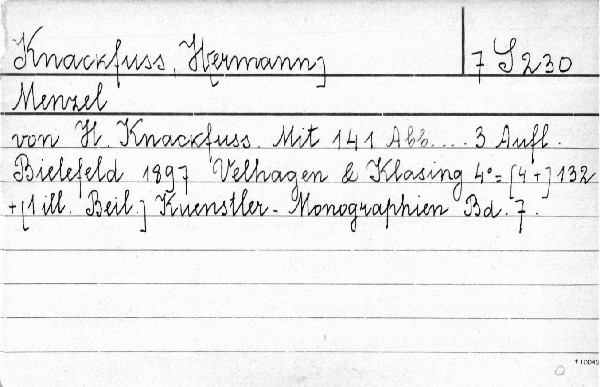 Knackfuss, H[ermann] 7 S 230
Menzel
von H. Knackfuss. Mit 141 Abb. ... 3 Aufl.
Bielefeld 1897 Velhagen & Klasing 4°= [4+] 132
+[1 ill. Beil.] Kuenstler-Monographien Bd. 7.